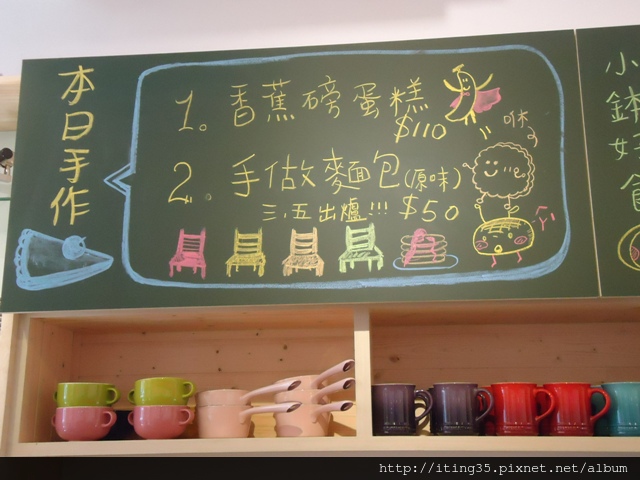 本日手作
1。香蕉磅蛋糕
$110
2。手做麵包(原味)
三.五出爐!!! $50
咻
小
好
食
http://iting35.pixnet.net/album